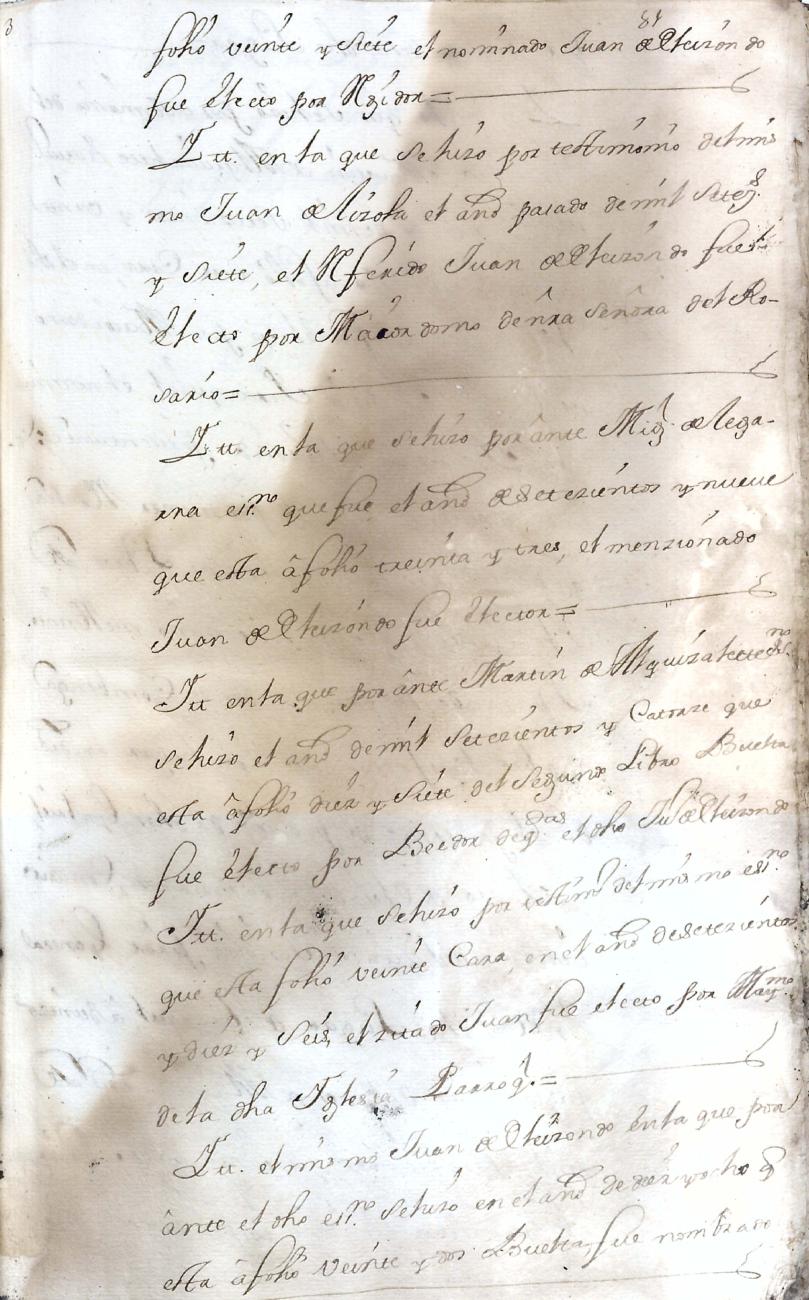 81
folió veinte y Siete el nominado Juan de Eleizondo
fue electo por Rexidor =
Ytt. en la que se hizo por testimonio del mis
mo Juan de Alzola el año pasado de mil Setez.s
y Siete, el Referido Juan de Eleizondo fue
electo por Maiordomo de nra Señora del Ro-
sario =
Ytt. en la que se hizo por ante Mig.l de lega-
rra ess.no que fue el año de Setezientos y nueve
que esta â folió treinta y tres, el menzionado
Juan de Eleizondo fue elector =
Ytt en la que por ante Martin de
se hizo el año de mil Setezientos y Catorze que
esta â folió diez y Siete del Segundo Libro Buelta
fue electo por Beedor de q.das el dho Ju.o de Eleizondo
Ytt. en la que se hizo por testim.o del mismo ess.no
que esta folió veinte Cara, en el año de Setezientos
y diez y Seis, el zitado Juan fue electo por May.mo
de la dha Iglesia Parroq.l =
Ytt. el mismo Juan de Eleizondo en la que por
ânte el dho ess.no se hizo en el año de diez y ocho q
esta â folió veinte y dos Buelta, fue nombrado